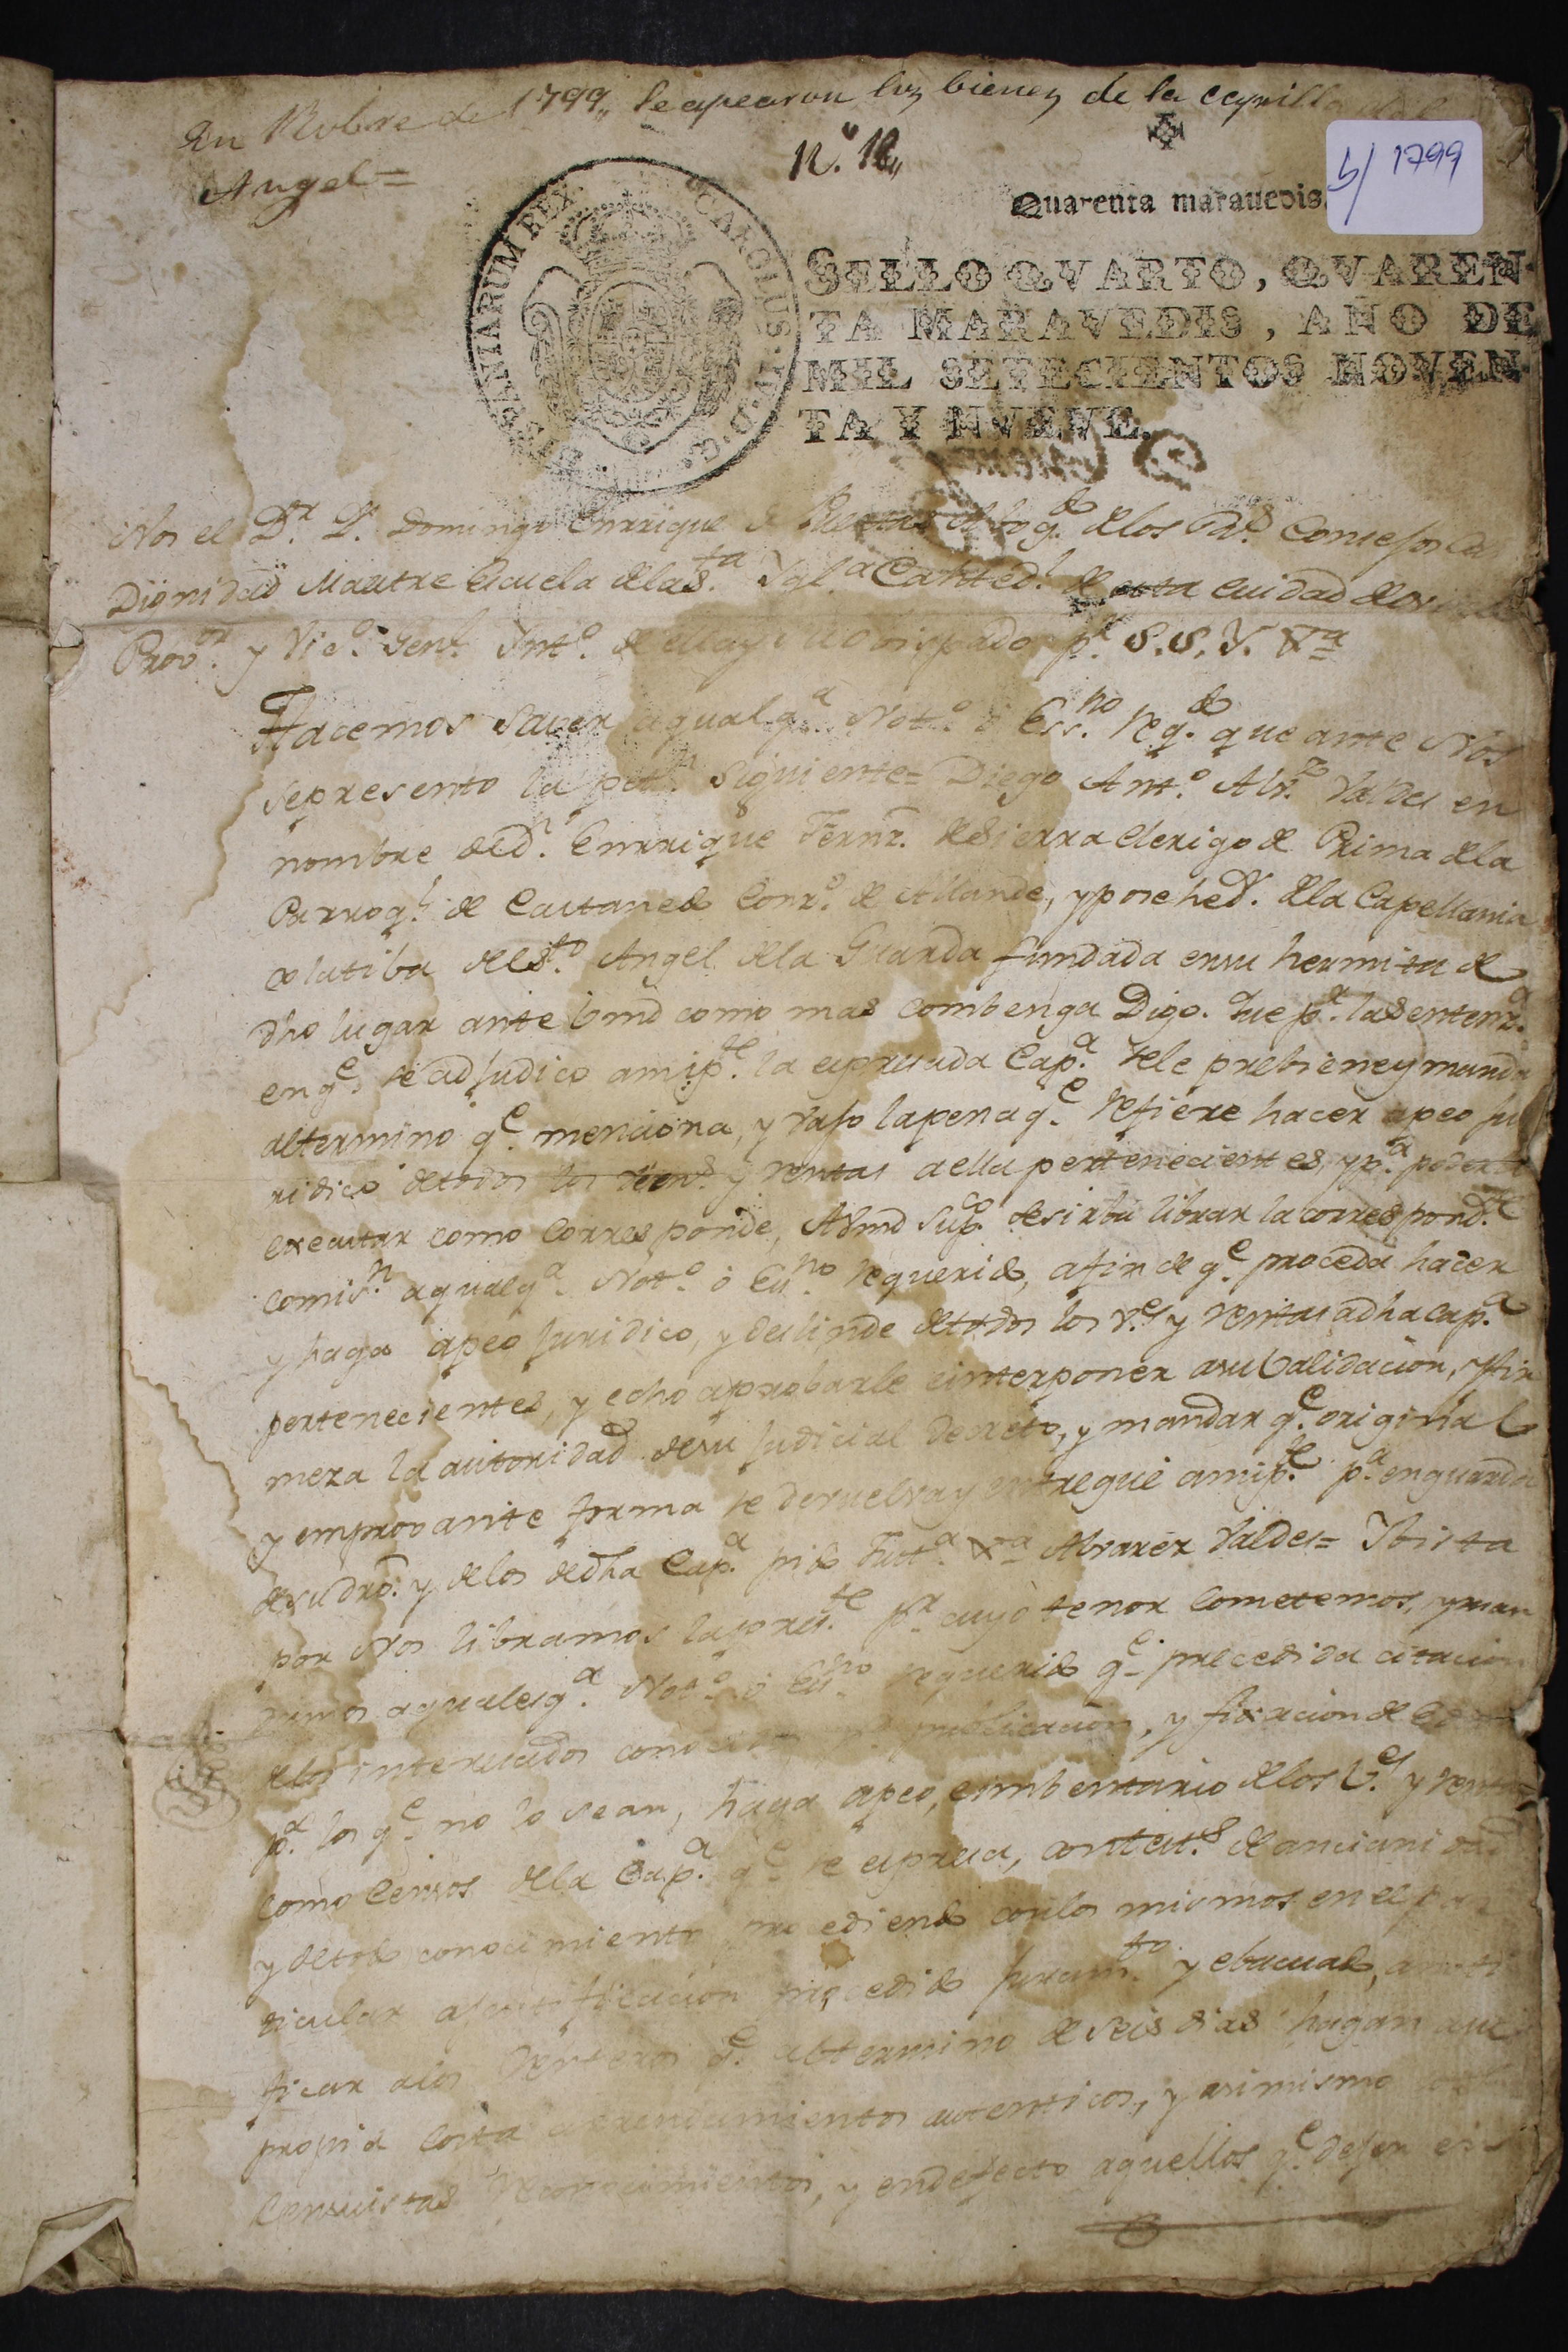 En Nobre de 1799,, se apearon los bienes de la capilla del
Angel=
N.º 12,,
b/ 1799
Quarenta marauedis.
SELLO QVARTO, QVAREN-
TA MARAVEDIS, AÑO DE
MIL SETECIENTOS NOVEN-
TA Y NVEVE.
CAROLUS IV D. G. HISPANIARUM REX
Nos el D.r D.n Domingo Enrrique de Abog.do de los R.s Consejos
Dignidad Maestre Escuela de la S.ta Ygl.a Cathed.l de esta ciudad de
Prov.or y Vic.o Gen.l Ynt.o de ella y su obispado p.r S.S.Y. &.a
Hacemos saver a qualq.a Not.o ò Ess.no req.do que ante Nos
se presento la pet.n siguiente= Diego Ant.o Alv.z Valdes en
nombre de d.n Enrrique Fernz. de Sierra Clerigo de Prima de la
Parroq.l de Castanedo Conz.o de Allande, y posehed.r de la Capellania
colatiba del S.to Angel de la Guarda fundada en su hermita de
dho lugar ante Vmd como mas combenga Digo. Que p.r la sentenz.a
en q.e se adjudico a mi p.te la expresada Cap.a se le prebiene y manda
al termino q.e menciona, y vajo la pena q.e refiere hacer apeo ju
ridico de todos los vien.s y rentas a ella pertenecientes, y p.a poderlo
executar como corresponde, A Vmd sup.co se sirba librar la correspond.te
comis.n a qualq.a Not.o ò Esn.no requerido, a fin de q.e proceda hacer
y haga apeo juridico, y deslinde de todos los v.es y rentas a dha cap.a
pertenecientes, y echo aprobarle e interponer a su validacion, y fir
meza la autoridad de su judicial decreto, y mandar q.e original
y en provante forma se devuelva y entregue a mi p.te p.a en guarda
de su dro. y de los de dha Cap.a pido Just.a &.a Alvarez Valdes= Y vista
por Nos libramos la pres.te p.r cuyo tenor cometemos, y man
damos a qualesq.a Not.o ò Esn.no requerido q.e precedida citacion
de los interesados conocidos p.r publicacion, y fixacion de
p.a los q.e no lo sean, haga apeo, e imbentario de los v.es y rentas
como Censos de la Cap.a q.e se expresa, con test.s de ancianidad
y de todo conocimiento procediendo con los mismos en el par
ticular a justificacion precedido juram.to y ebacuado, a noti
ficar a los Renteros q.e al termino de seis dias hagan a su
propia costa arrendamientos autenticos, y asimismo los
Censuistas reconocimientos, y en defecto aquellos q.e dejen